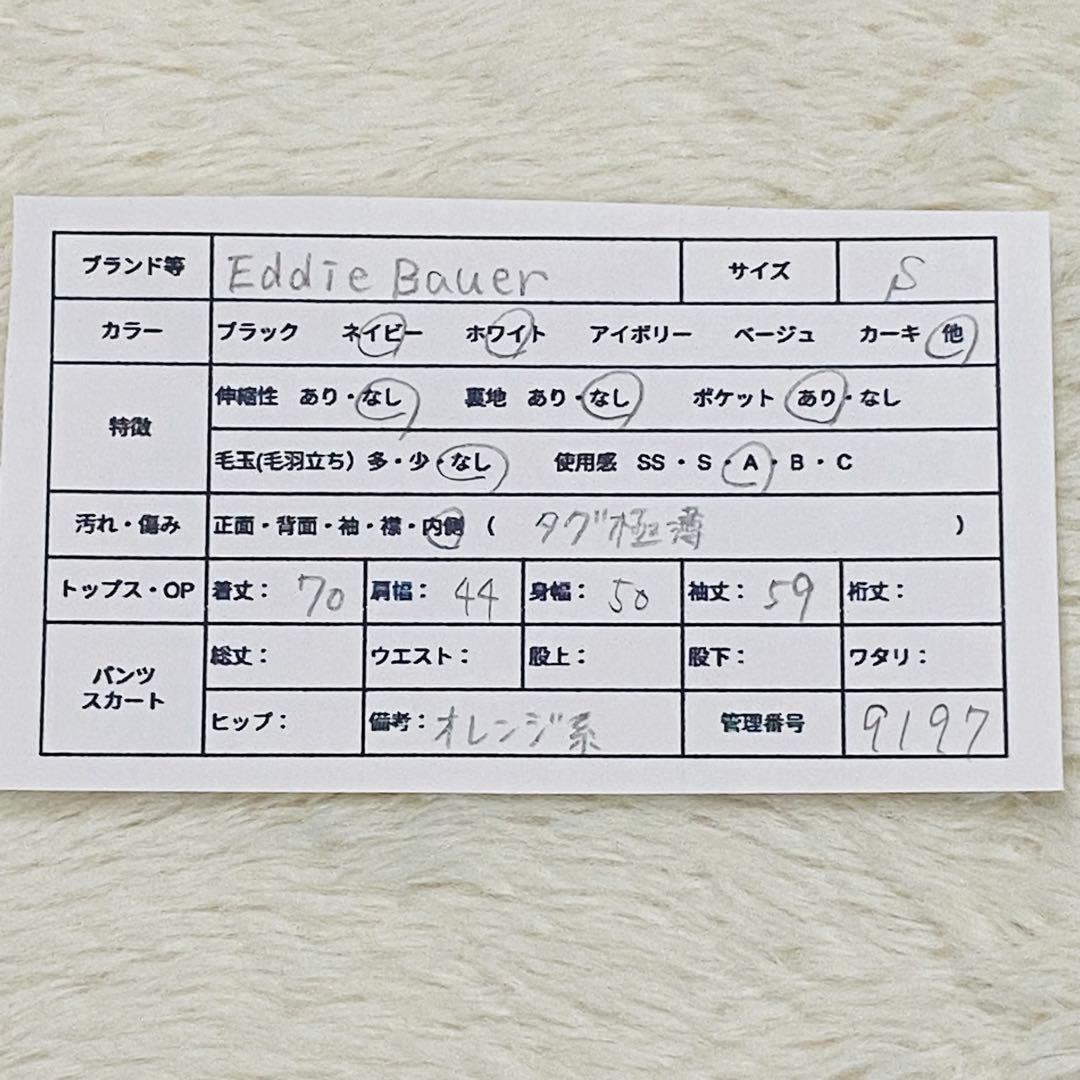 ブランド等 Eddie Bauer サイズ S
カラー ブラック ネイビー ホワイト アイボリー ベージュ カーキ 他
特徴 伸縮性 あり・なし 裏地 あり・なし ポケット あり・なし
毛玉(毛羽立ち) 多・少・なし 使用感 SS・S・A・B・C
汚れ・傷み 正面・背面・袖・襟・内側 ( タグ極薄 )
トップス・OP 着丈: 70 肩幅: 44 身幅: 50 袖丈: 59 裄丈:
パンツ スカート 総丈: ウエスト: 股上: 股下: ワタリ:
ヒップ: 備考: オレンジ系 管理番号 9197